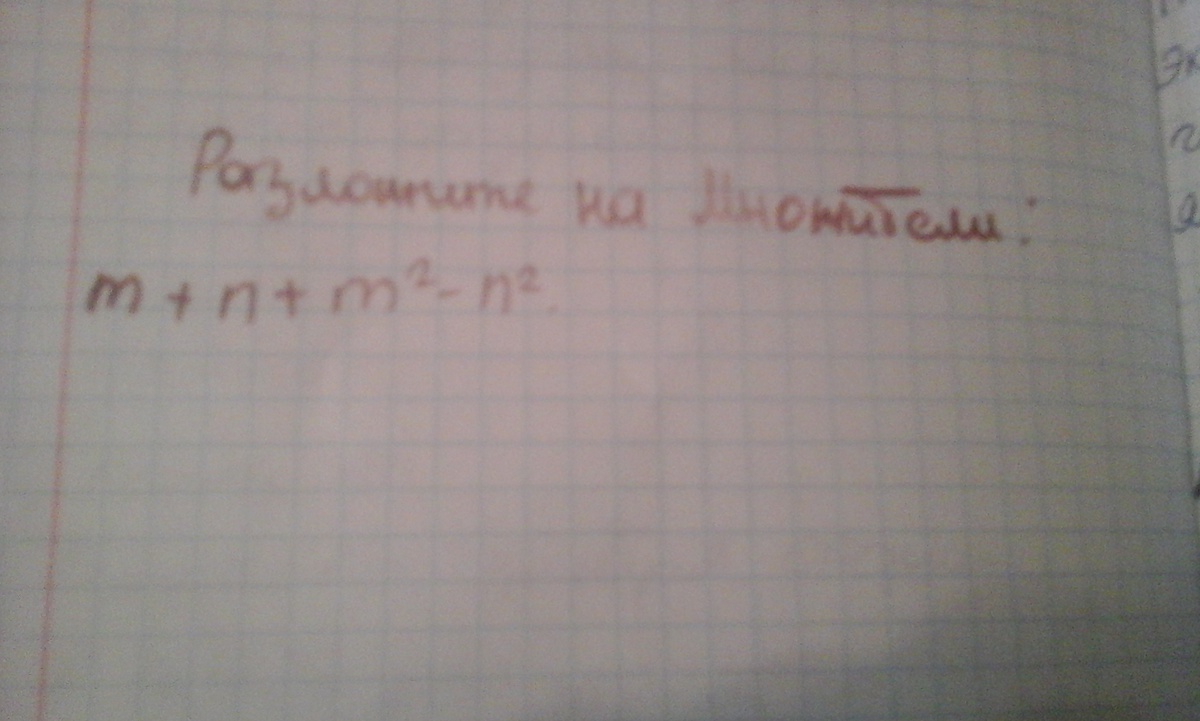 Разложите на множители:
m + n + m² - n².
эк